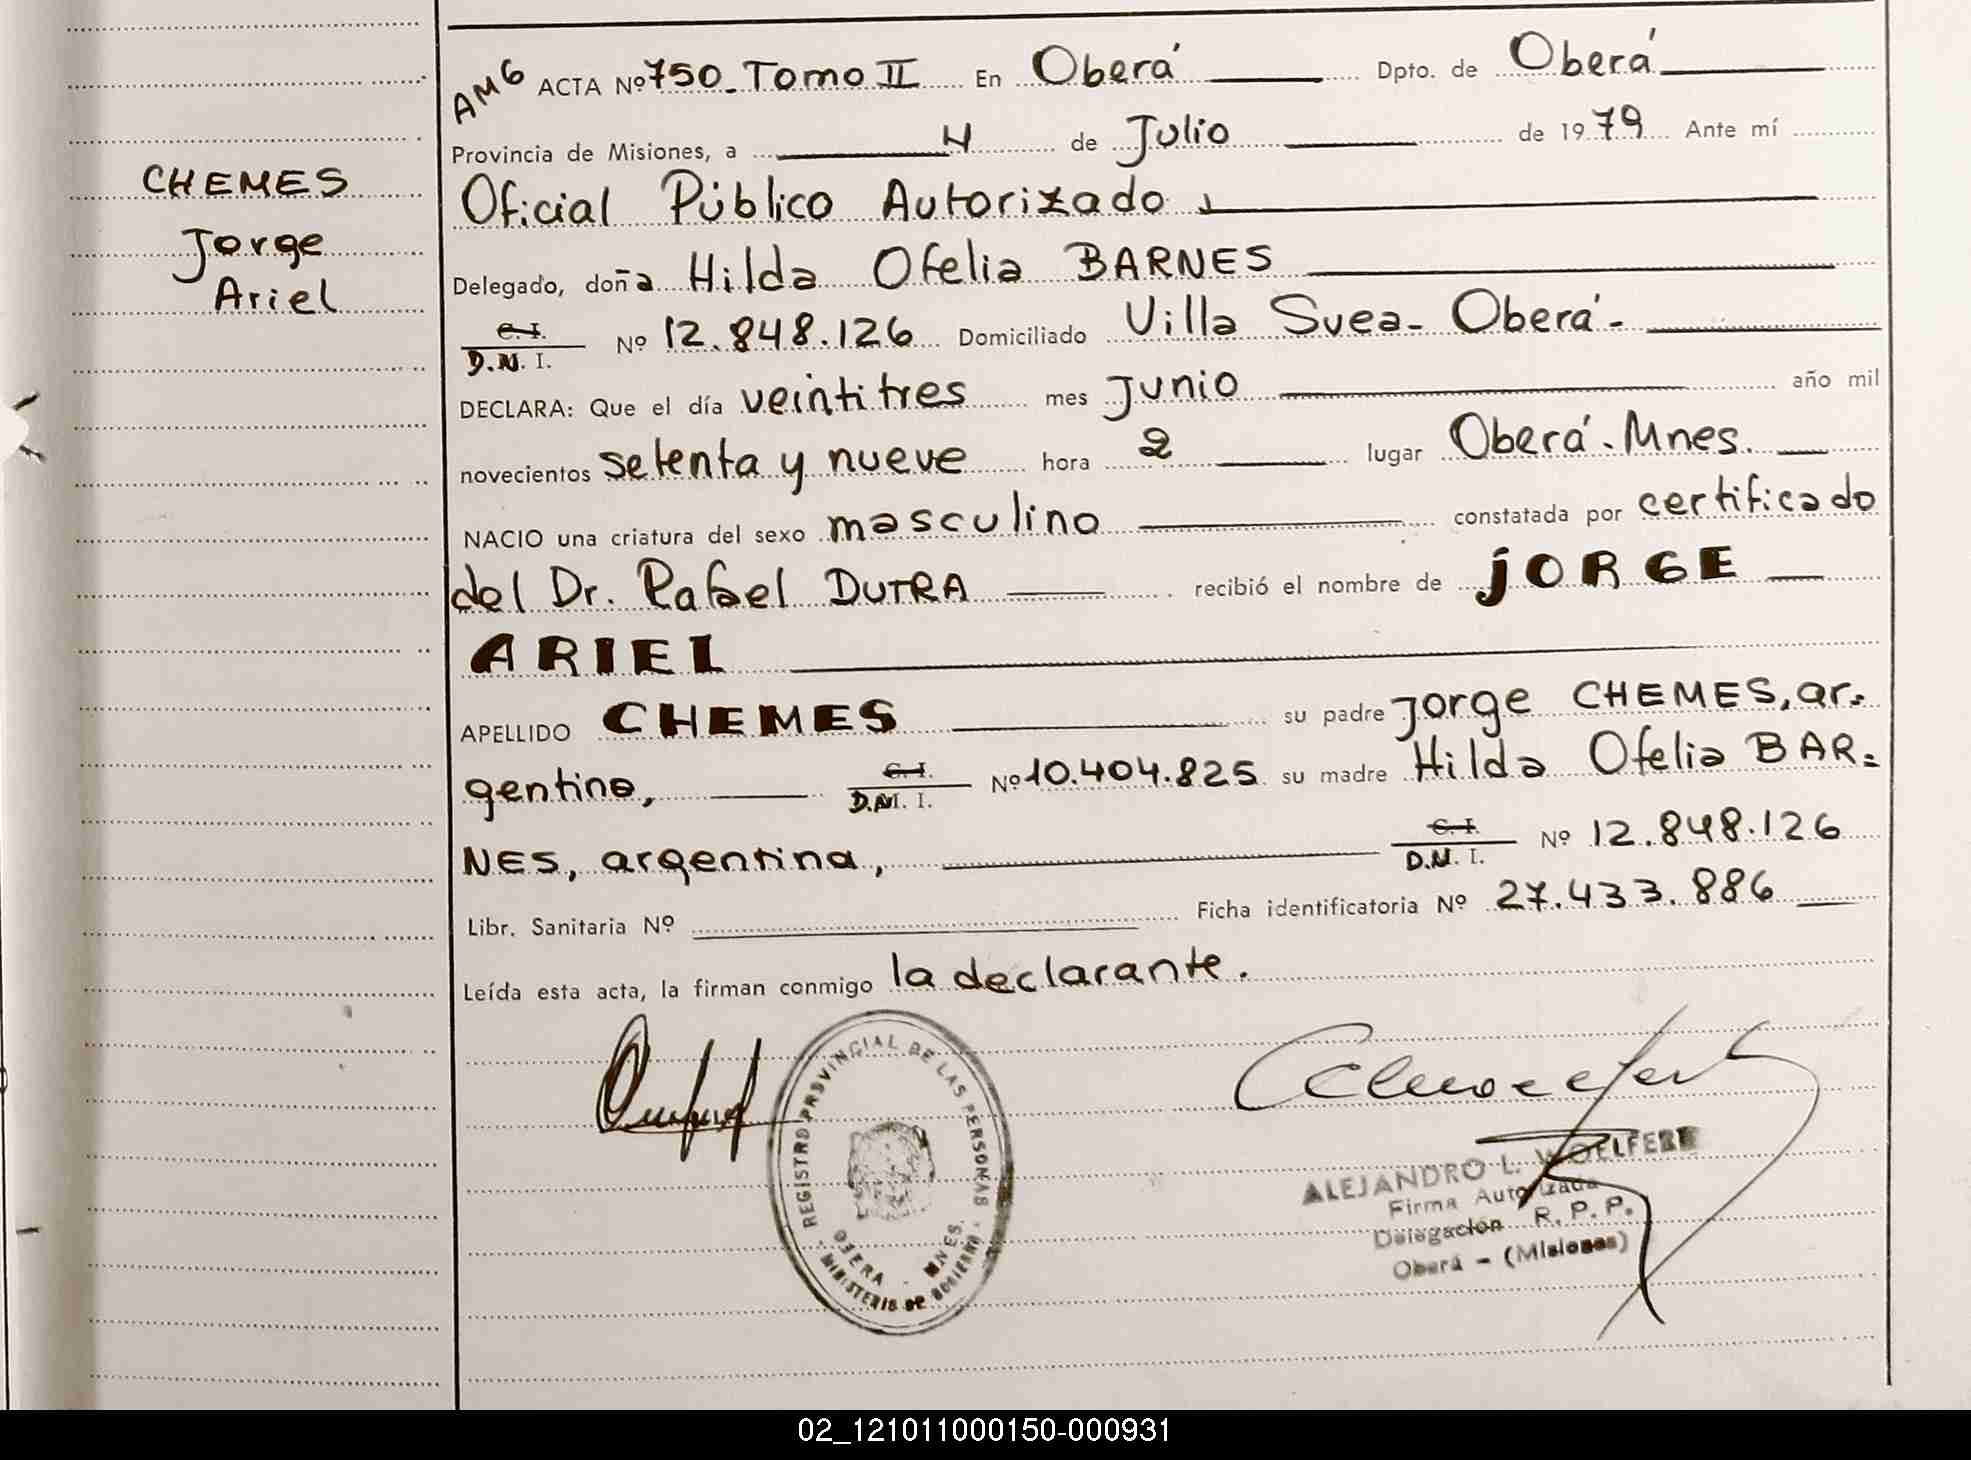 CHEMES
Jorge
Ariel
AMG ACTA Nº 750_ Tomo II En Oberá Dpto. de Oberá
Provincia de Misiones, a 4 de Julio de 1979 Ante mí
Oficial Público Autorizado
Delegado, doña Hilda Ofelia BARNES
C. I. D.N.I. Nº 12.848.126 Domiciliado Villa Svea- Oberá-
DECLARA: Que el día veintitres mes Junio año mil
novecientos setenta y nueve hora 2 lugar Oberá-Mnes.
NACIO una criatura del sexo masculino constatada por certificado
del Dr. Rafael DUTRA recibió el nombre de JORGE
ARIEL
APELLIDO CHEMES su padre Jorge CHEMES, ar=
gentino, C. I. D.N.I. Nº 10.404.825 su madre Hilda Ofelia BAR=
NES, argentina, C. I. D.N.I. Nº 12.848.126
Libr. Sanitaria Nº Ficha identificatoria Nº 27.433.886
Leída esta acta, la firman conmigo la declarante.
REGISTRO PROVINCIAL DE LAS PERSONAS
OBERA - MNES.
MINISTERIO DE GOBIERNO
ALEJANDRO L. WOELFERT
Firma Autorizada
Delegación R. P. P.
Oberá - (Misiones)
02_121011000150-000931